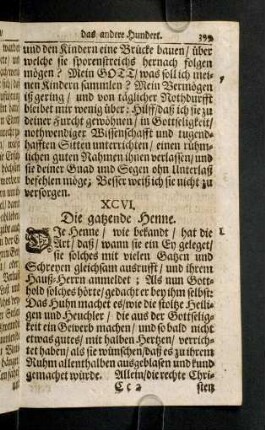 das andere Hundert. 399
und den Kindern eine Brücke bauen / über
welche sie sporenstreichs hernach folgen
mögen? Mein GOTT / was soll ich mei-
nen Kindern sammlen? Mein Vermögen
ist gering / und von täglicher Nothdurfft
bleibet mir wenig über: Hilff / daß ich sie zu
deiner Furcht gewöhnen / in Gottseligkeit /
nothwendiger Wissenschafft und tugend-
hafften Sitten unterrichten / einen rühm-
lichen guten Nahmen ihnen verlassen / und
sie deiner Gnad und Segen ohn Unterlaß
befehlen möge; Besser weiß ich sie nicht zu
versorgen.
XCVI.
Die gatzende Henne.
DIe Henne / wie bekandt / hat die 1.
Art / daß / wann sie ein Ey geleget /
sie solches mit vielen Gatzen und
Schreyen gleichsam ausrufft / und ihrem
Hauß-Herrn anmeldet; Als nun Gott-
hold solches hörte / gedacht er bey ihm selbst:
Das Huhn macht es / wie die stoltze Heili-
gen und Heuchler / die aus der Gottselig-
keit ein Gewerb machen / und so bald nicht
etwas gutes / mit halben Hertzen / verrich-
tet haben / als sie wünschen / daß es zu ihrem
Ruhm allenthalben ausgeblasen und kund
gemachet würde. Allein / die rechte Chri-
C c 2 sten